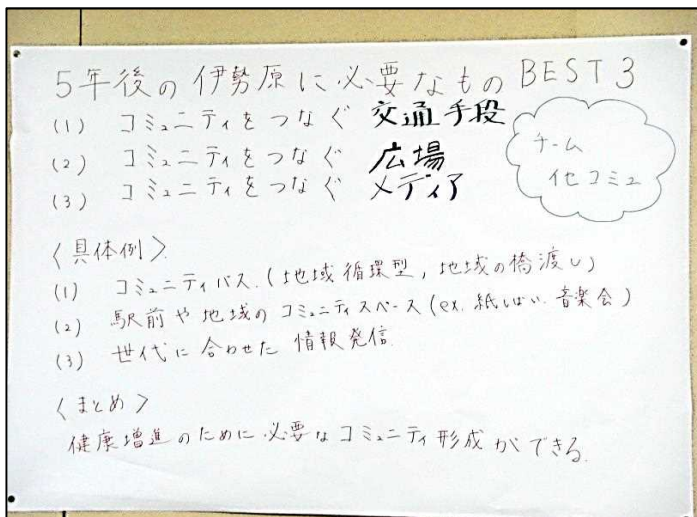 5年後の伊勢原に必要なもの BEST 3
(1) コミュニティをつなぐ 交通手段
(2) コミュニティをつなぐ 広場
(3) コミュニティをつなぐ メディア
チーム
イセコミュ
〈具体例〉
(1) コミュニティバス.(地域循環型,地域の橋渡し)
(2) 駅前や地域のコミュニティスペース(ex. 紙しばい. 音楽会)
(3) 世代に合わせた 情報発信.
〈まとめ〉
健康増進のために必要なコミュニティ形成ができる.